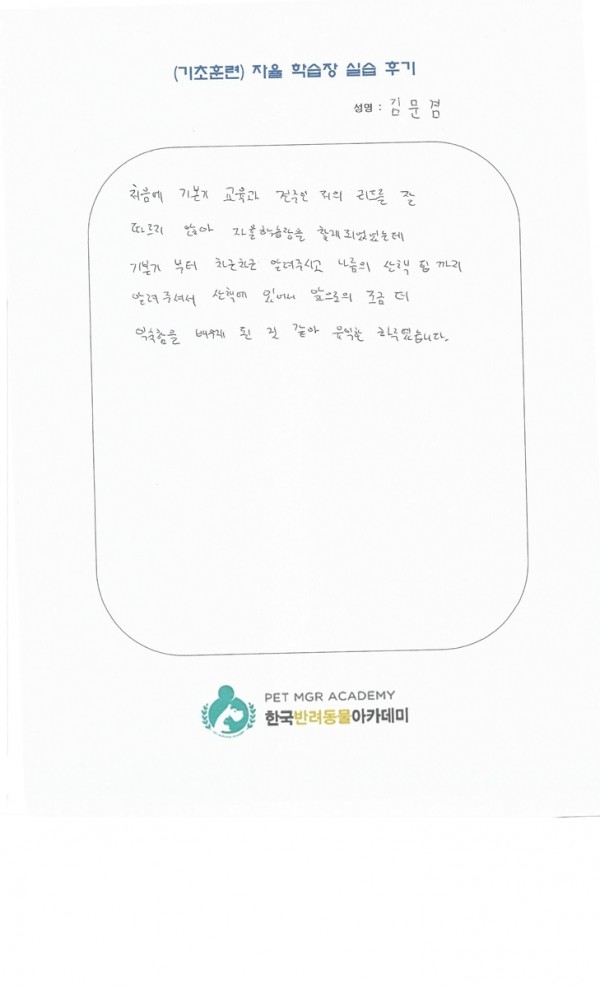 (기초훈련) 자율 학습장 실습 후기
성명 : 김문겸
처음에 기본기 교육과 견주인 저의 리드를 잘
따르지 않아 자율학습장을 찾게되었었는데
기본기 부터 차근차근 알려주시고 나름의 산책 팁 까지
알려주셔서 산책에 있어서 앞으로의 조금 더
익숙함을 배우게 된 것 같아 유익한 하루였습니다.
PET MGR ACADEMY
한국반려동물아카데미